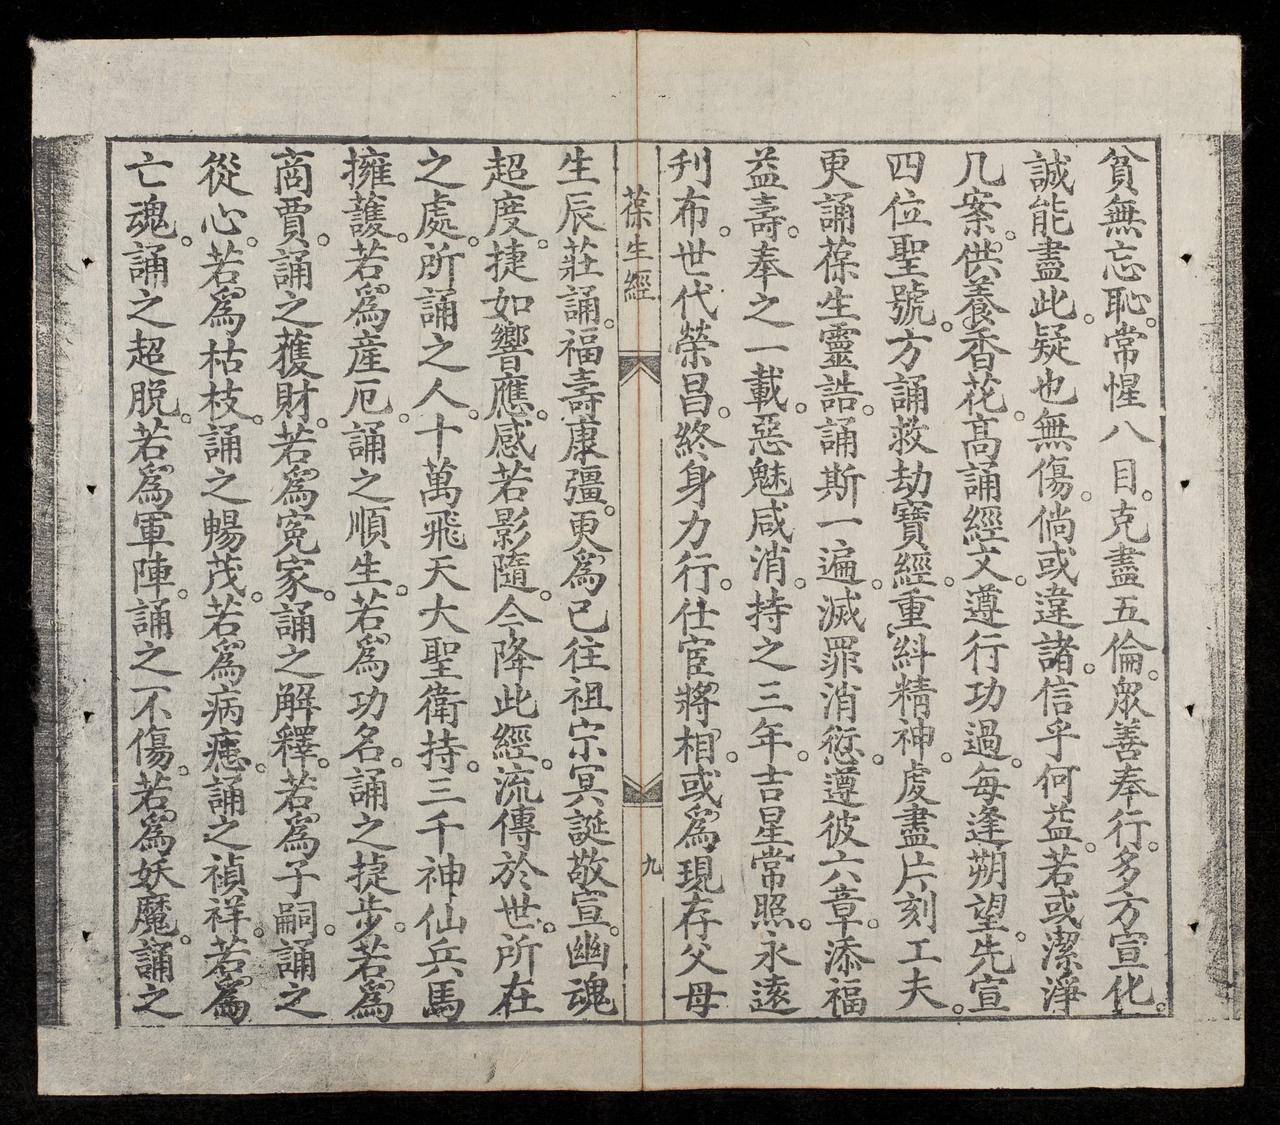 貧無忘恥。常惺八目。克盡五倫。眾善奉行。多方宣化。
誠能盡此。疑也無傷。倘或違諸。信乎何益。若或潔淨
几案。供養香花。高誦經文。遵行功過。每逢朔望。先宣
四位聖號。方誦救劫寶經。重糾精神。虔盡片刻工夫。
更誦葆生靈誥。誦斯一遍。滅罪消愆。遵彼六章。添福
益壽。奉之一載。惡魅咸消。持之三年。吉星常照。永遠
刋布。世代榮昌。終身力行。仕宦將相。或為現存父母
葆生經
九
生辰莊誦。福壽康彊。更為已往祖宗冥誕敬宣。幽魂
超度。捷如響應。感若影隨。今降此經。流傳於世。所在
之處。所誦之人。十萬飛天大聖衛持。三千神仙兵馬
擁護。若為產厄。誦之順生。若為功名。誦之捷步。若為
商賈。誦之獲財。若為冤家。誦之解釋。若為子嗣。誦之
從心。若為枯枝。誦之暢茂。若為病瘧。誦之禎祥。若為
亡魂。誦之超脫。若為軍陣。誦之不傷。若為妖魔。誦之